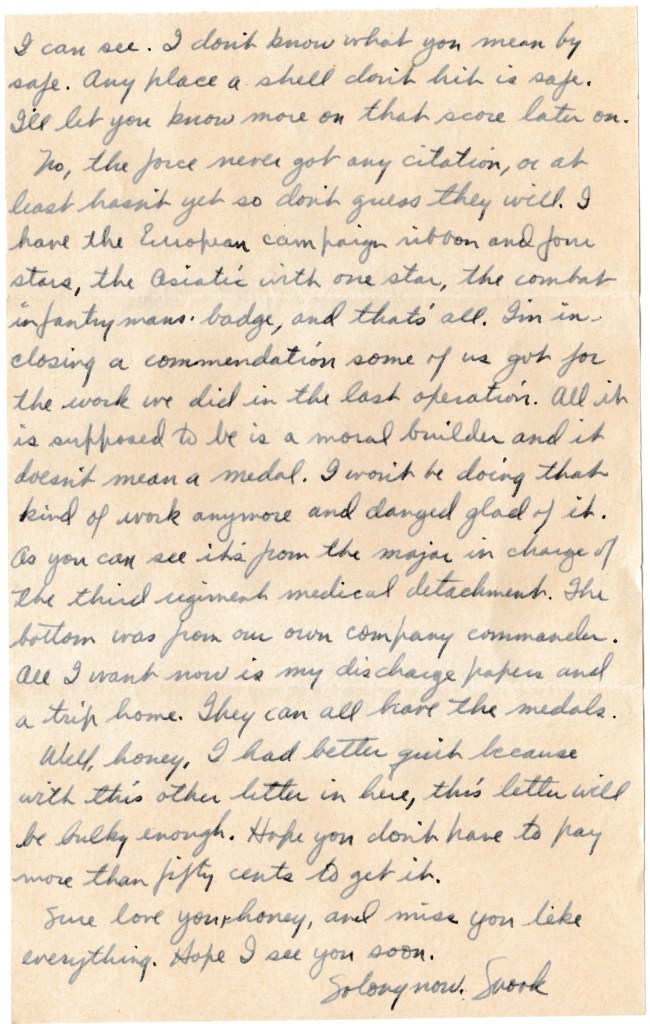 I can see. I don't know what you mean by
safe. Any place a shell don't hit is safe.
I'll let you know more on that score later on.
No, the force never got any citation, or at
least hasn't yet so don't guess they will. I
have the European campaign ribbon and four
stars, the Asiatic with one star, the combat
infantrymans badge, and that's all. I'm in-
closing a commendation some of us got for
the work we did in the last operation. All it
is supposed to be is a moral builder and it
doesn't mean a medal. I won't be doing that
kind of work anymore and danged glad of it.
As you can see it's from the major in charge of
the third regiment medical detachment. The
bottom was from our own company commander.
All I want now is my discharge papers and
a trip home. They can all have the medals.
Well, honey, I had better quit because
with this other letter in here, this letter will
be bulky enough. Hope you don't have to pay
more than fifty cents to get it.
Sure love you, honey, and miss you like
everything. Hope I see you soon.
So long now.